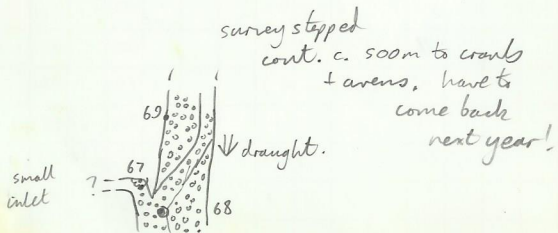 survey stopped
cont. c. 500m to crawls
+ avens. have to
come back
next year!
69
draught.
67
small
inlet
?
68